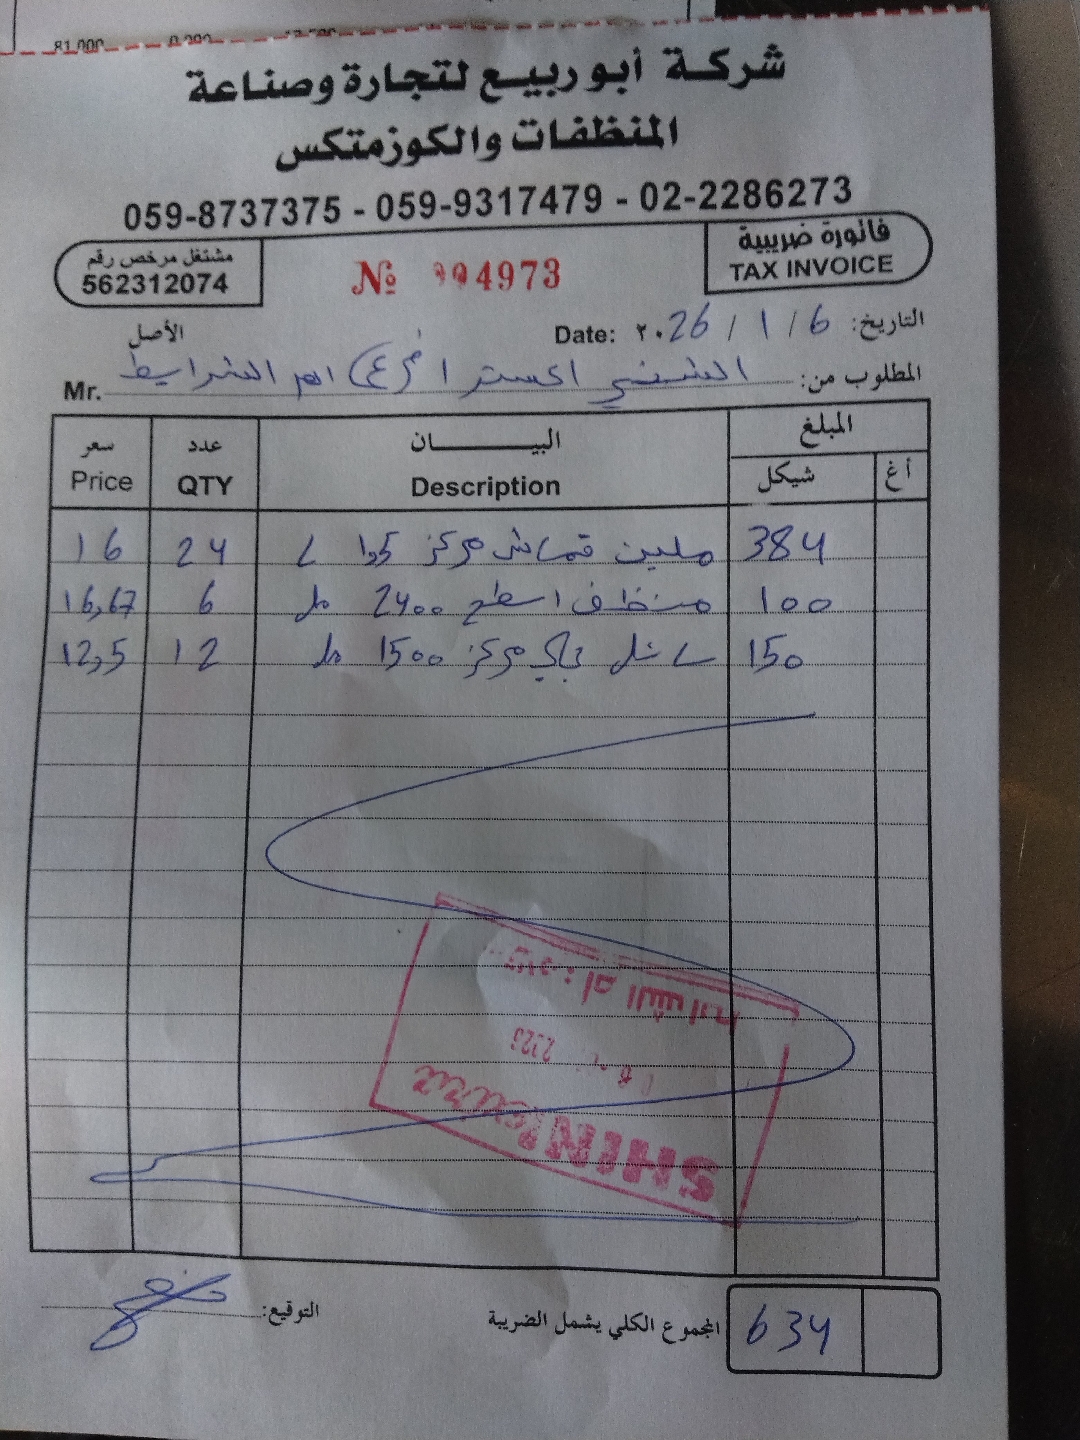 81.000 0.000
شركة أبو ربيع لتجارة وصناعة
المنظفات والكوزمتكس
059-8737375 - 059-9317479 - 02-2286273
مشتغل مرخص رقم
562312074
№ 004973
فاتورة ضريبية
TAX INVOICE
الأصل
التاريخ: Date: ٢٠26 / 1 / 6
المطلوب من: الشني اكسترا فرع ام الشرايط Mr.
سعر عدد البيــــــان المبلغ
Price QTY Description شيكل أغ
16 24 ملين قماش مركز 1,5 ل 384
16,67 6 منظف اسطح 2400 مل 100
12,5 12 سائل جلي مركز 1500 مل 150
SHINI extra
المجموع الكلي يشمل الضريبة 634
التوقيع: